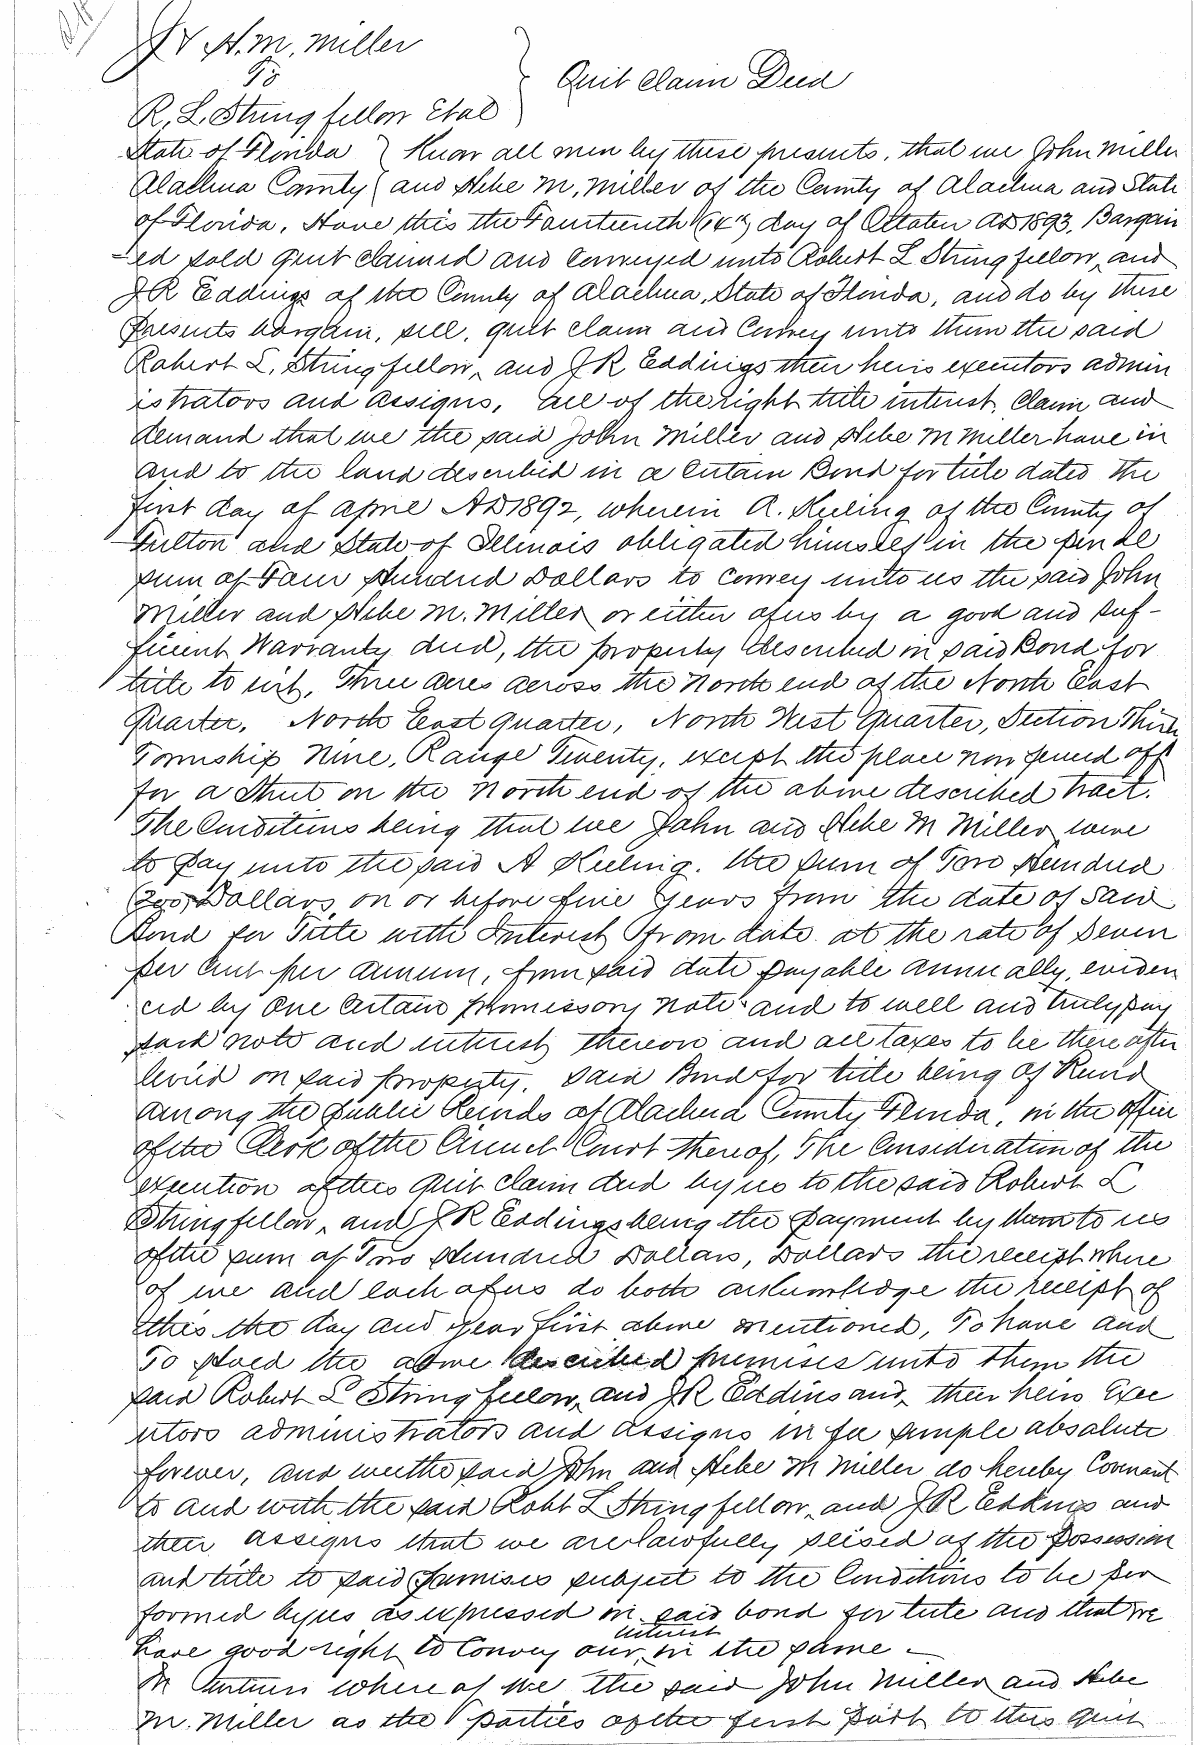 J & H. M. Miller
To
Quit Claim Deed
R. L. Stringfellow Etal
State of Florida } Know all men by these presents, that we John Miller
Alachua County { and Hebe M, Miller of the County of Alachua and State
of Florida, Have this the Fourteenth (14th) day of October AD 1893, Bargain
-ed sold quit claimed and conveyed unto Robert L Stringfellow, and
J R Eddings of the County of Alachua, State of Florida, and do by these
presents bargain, sell, quit claim and Convey unto them the said
Robert L. Stringfellow, and J R Eddings their heirs executors admin
istrators and assigns, all of the right title interest, claim and
demand that we the said John Miller and Hebe M Miller have in
and to the land described in a certain Bond for title dated the
first day of April AD 1892, wherein A. Keeling of the County of
Fulton and State of Illinois obligated himself in the penal
sum of Four Hundred Dollars to convey unto us the said John
Miller and Hebe M. Miller or either of us by a good and suf-
ficient Warranty deed, the property described in said Bond for
title to wit, Three acres across the North end of the North East
Quarter, North East quarter, North West Quarter, Section Thirty
Township Nine, Range Twenty, except the place now fenced off
for a Street on the North end of the above described tract.
The Conditions being that we John and Hebe M Miller were
to pay unto the said A Keeling, the sum of Two Hundred
(200) Dollars on or before five years from the date of said
Bond for Title with Interest from date at the rate of seven
per cent per annum, from said date payable annually, eviden
ced by one certain promissory note and to well and truly pay
said note and interest thereon and all taxes to be thereafter
levied on said property. Said Bond for title being of Record
among the public Records of Alachua County Florida, in the office
of the Clerk of the Circuit Court thereof, The Consideration of the
execution of this quit claim deed by us to the said Robert L
Stringfellow, and J R Eddings being the payment by them to us
of the sum of Two Hundred Dollars, Dollars the receipt where
of we and each of us do both acknowledge the receipt of
this the day and year first above mentioned, To have and
To Hold the above described premises unto them the
said Robert L Stringfellow, and J R Eddins and, their heirs Exec
utors administrators and assigns in fee simple absolute
forever, and we the said John and Hebe M Miller do hereby Covenant
to and with the said Robt L Stringfellow, and J R Eddins and
their assigns that we are lawfully seised of the possession
and title to said premises subject to the Conditions to be per
formed by us as expressed in said bond for title and that we
have good right to Convey our interest in the same -
In witness where of we the said John Miller and Hebe
M. Miller as the parties of the first part to this quit